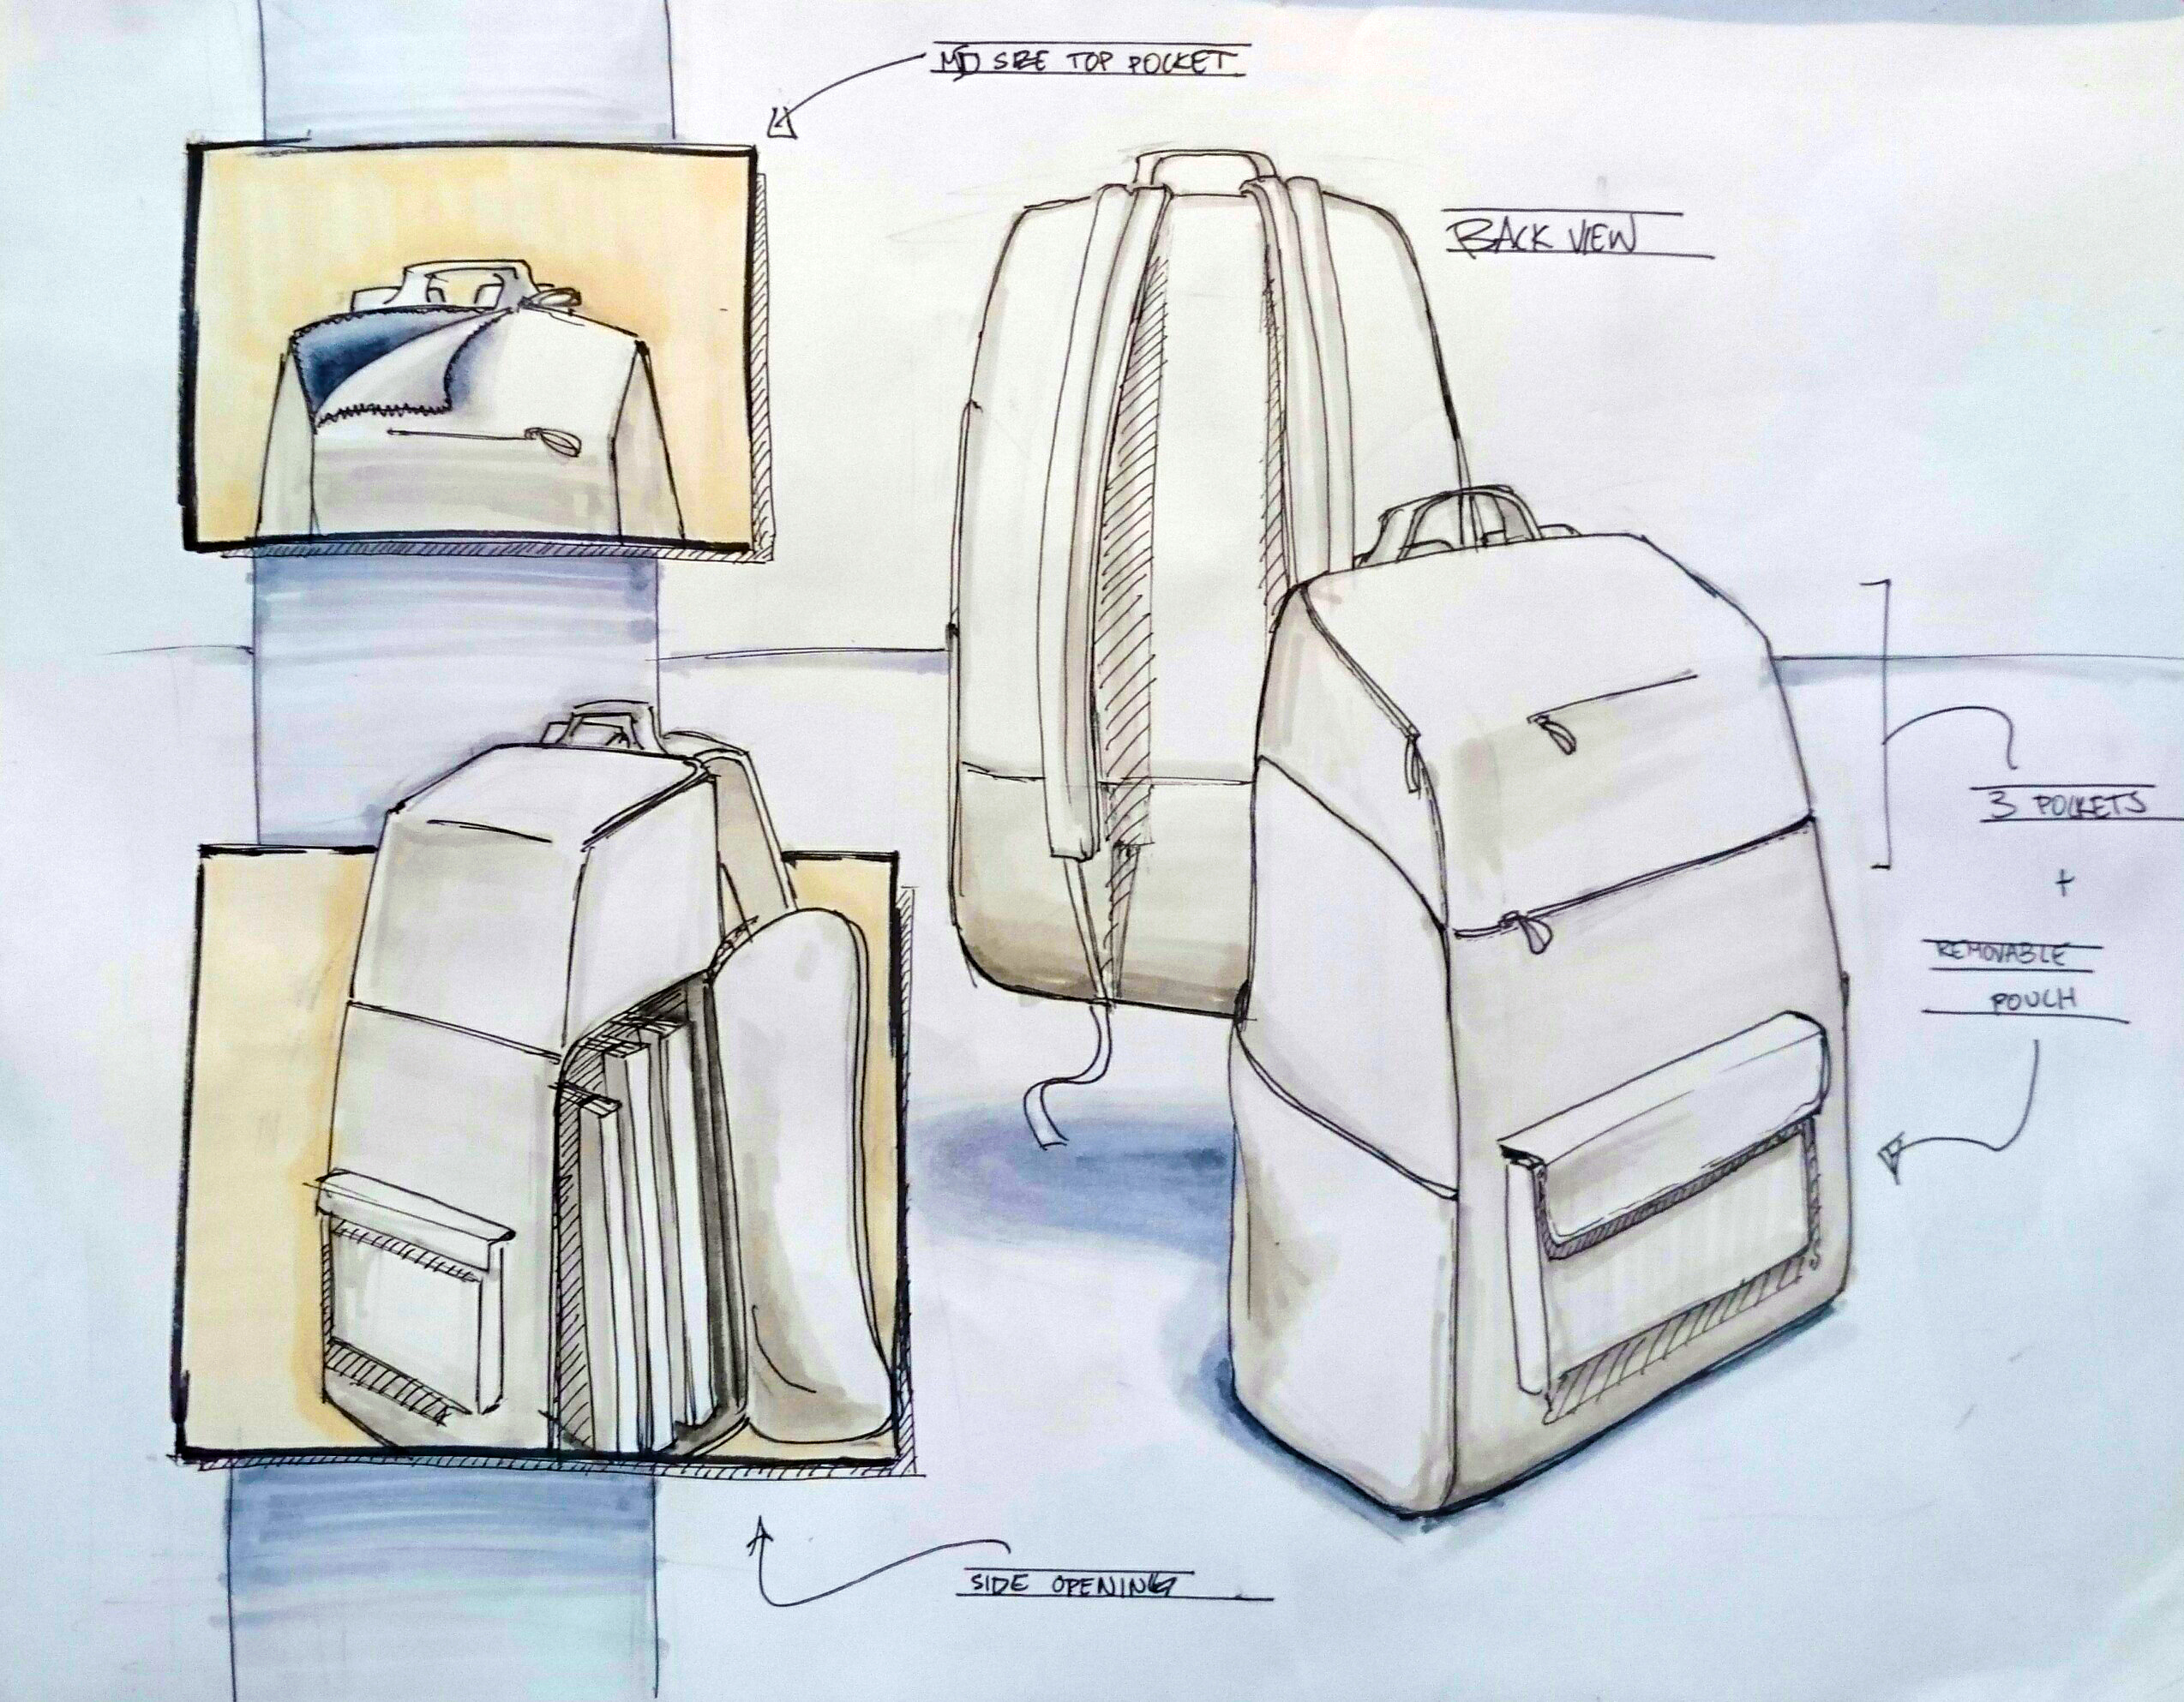 MD SIZE TOP POCKET
BACK VIEW
3 POCKETS
+
REMOVABLE
POUCH
SIDE OPENING